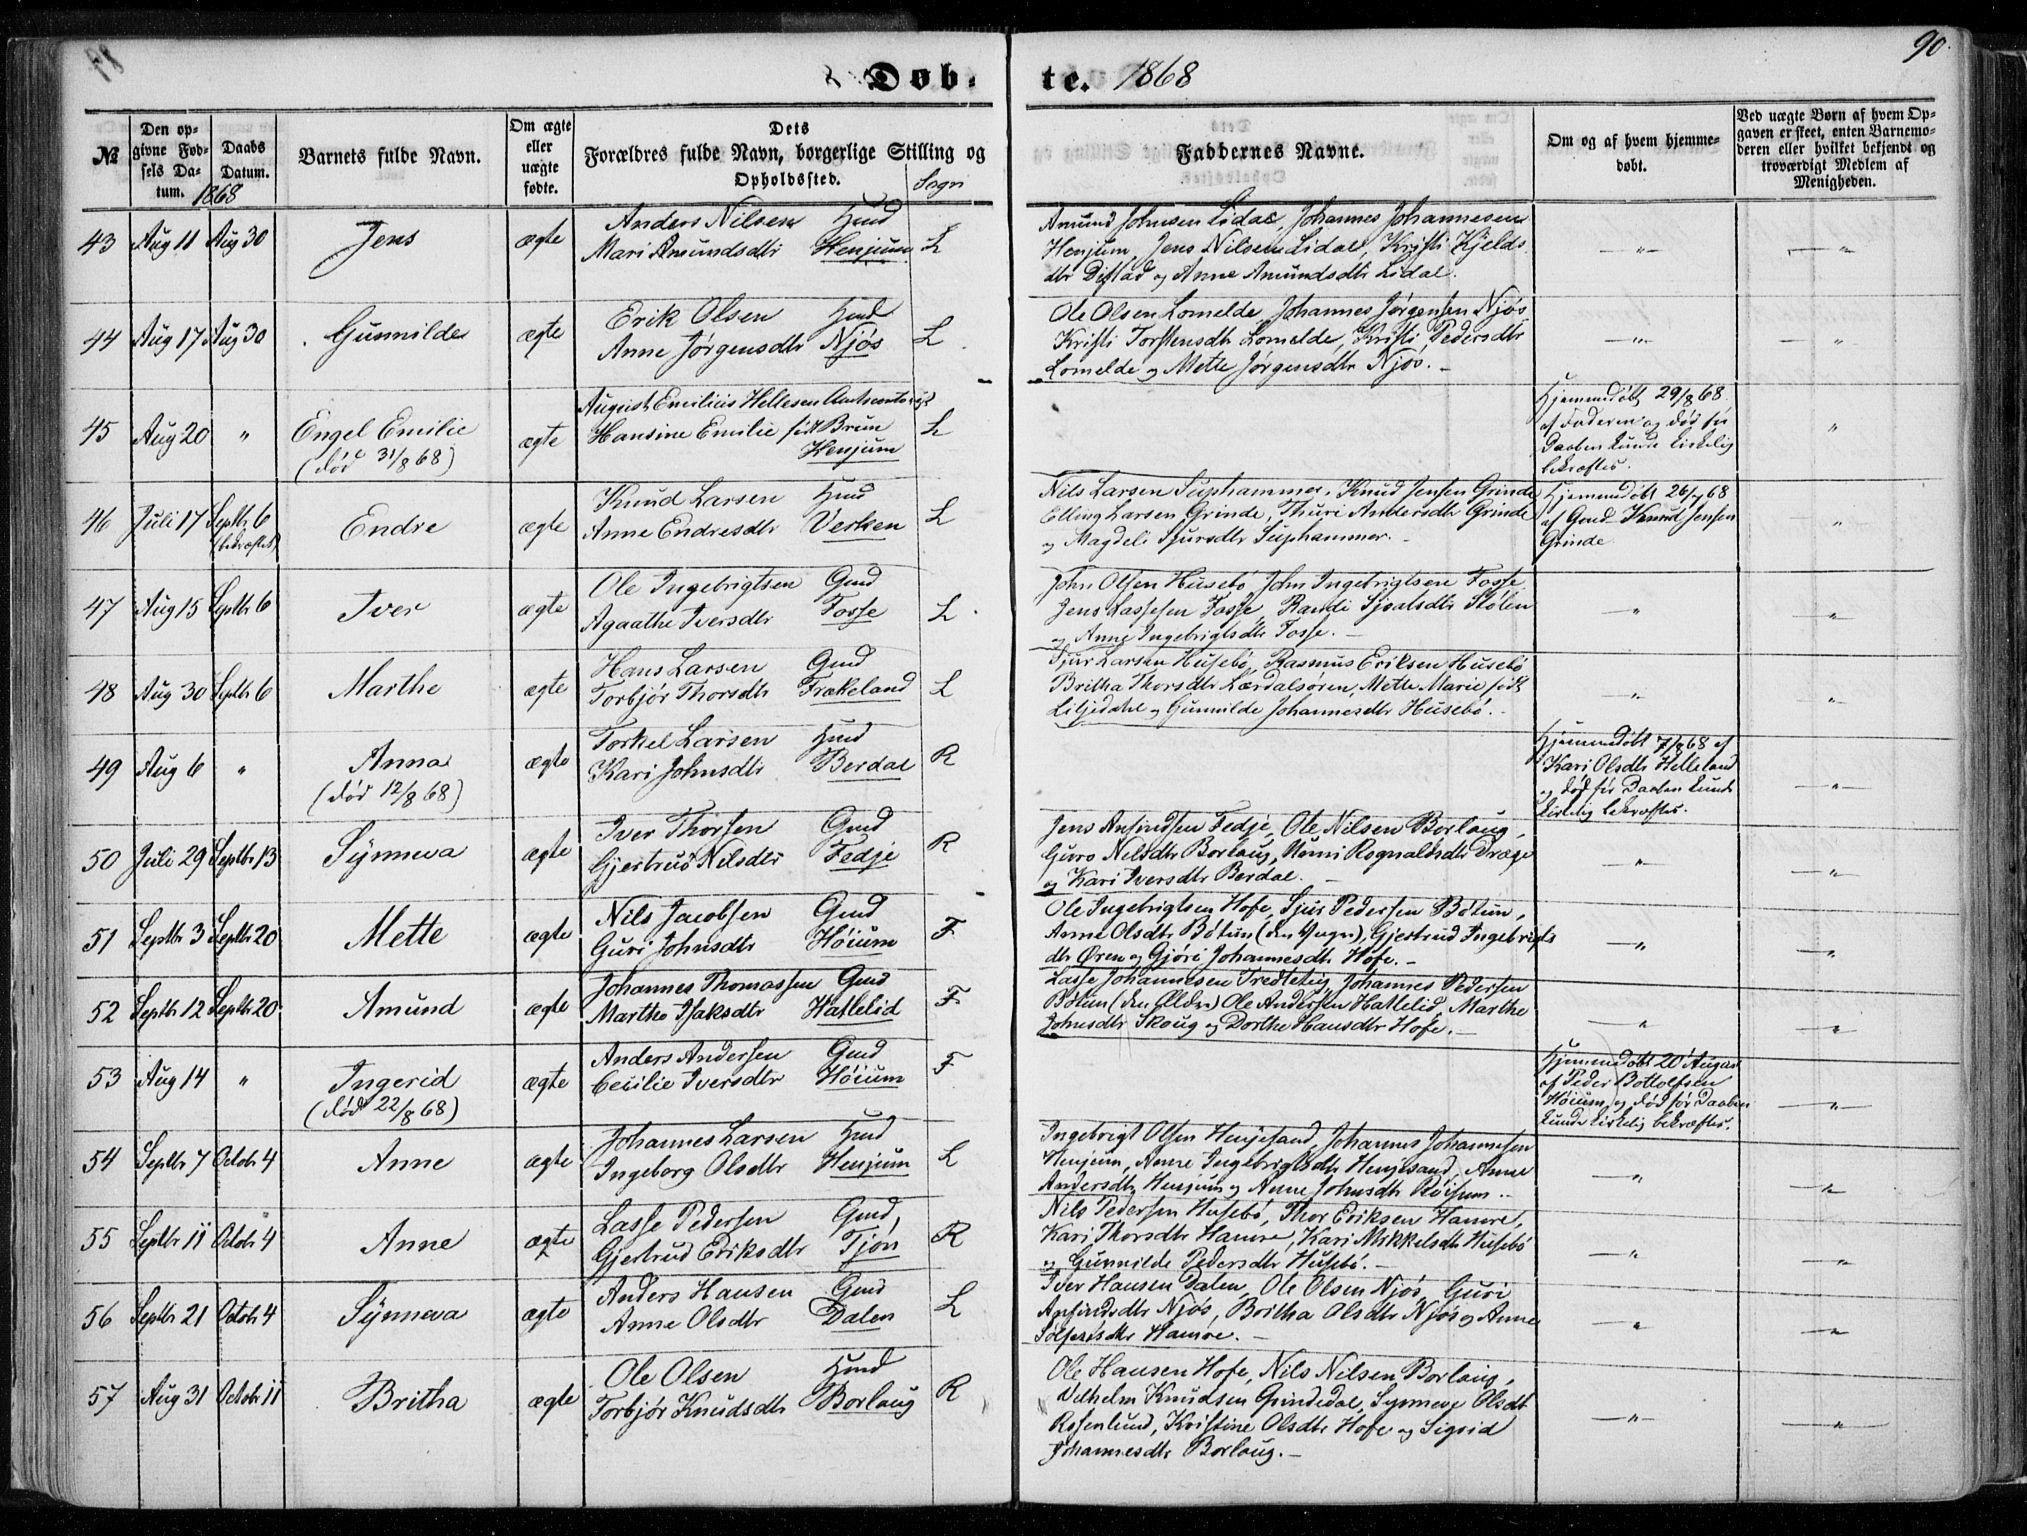 90.
Døb-
te. 1868
№
Den op-
givne Fød-
sels Da-
tum.
Daabs
Datum.
1868
Barnets fulde Navn.
Om ægte
eller
uægte
fødte.
Dets
Forældres fulde Navn, borgerlige Stilling og
Opholdssted.
Sogn
Faddernes Navne.
Om og af hvem hjemme-
døbt.
Ved uægte Børn af hvem Op-
gaven er skeet, enten Barnemo-
deren eller hvilket bekjendt og
troværdigt Medlem af
Menigheden.
43 Aug 11 Aug 30 Jens ægte
Anders Nilsen Hmd
Mari Amundsdtr Henjum L
Amund Johnsen Lidal, Johannes Johannesen
Henjum, Jens Nilsen Lidal, Kristi Kjelds
dtr Distad og Anne Amundsdtr Lidal.
44 Aug 17 Aug 30 Gunnilde ægte
Erik Olsen Hmd
Anne Jørgensdtr Njøs L
Ole Olsen Lomelde, Johannes Jørgensen Njøs
Kristi Torstensdtr Lomelde, Kristi Pedersdtr
Lomelde og Mette Jørgensdtr Njøs. -
45 Aug 20 " Engel Emilie
(død 31/8 68) ægte
August Emilius Hellesen
Hansine Emilie født Brun
Henjum L
Hjemmedøbt 29/8 68
af Faderen og død før
Daaben kunde kirkelig
bekræftes.
46 Juli 17 Septbr 6
(bekræftet) Endre ægte
Knud Larsen Hmd
Anne Endresdtr Verken L
Nils Larsen Suphammer, Knud Jensen Grinde
Elling Larsen Grinde, Thuri Andersdtr Grinde
og Magdeli Sjursdtr Suphammer. -
Hjemmedøbt 26/7 68
af Gmd. Knud Jensen
Grinde
47 Aug 15 Septbr 6 Iver ægte
Ole Ingebrigtsen Gmd
Agaathe Iversdtr Fosse L
John Olsen Husebø, John Ingebrigtsen Fosse
Jens Lassesen Fosse, Randi Sjursdtr Stølen
og Anne Ingebrigtsdtr Fosse. -
48 Aug 30 Septbr 6 Marthe ægte
Hans Larsen Gmd
Torbjør Thorsdtr Frækeland L
Sjur Larsen Husebø, Rasmus Eriksen Husebø
Britha Thorsdtr Lærdalsøren, Mette Marie født
Liljedahl og Gunnilde Johannesdtr Husebø. -
49 Aug 6 " Anna
(død 12/8 68) ægte
Torkel Larsen Hmd
Kari Johnsdtr Berdal R
Hjemmedøbt 7/8 68 af
Kari Olsdtr Helleland
og død før Daaben kunde
kirkelig bekræftes.
50 Juli 29 Septbr 13 Synneva ægte
Iver Thorsen Gmd
Gjertrud Nilsdtr Fedje R
Jens Anfindsen Fedje, Ole Nilsen Borlaug,
Guro Nilsdtr Borlaug, Unni Rognaldsdtr Dræge
og Kari Iversdtr Berdal. -
51 Septbr 3 Septbr 20 Mette ægte
Nils Jacobsen Gmd
Guri Johnsdtr Høium F
Ole Ingebrigtsen Hofe, Sjur Pedersen Bøtun,
Anne Olsdtr Bøtun (den Yngre), Gjertrud Ingebrigts
dtr Øren og Gjøri Johannesdtr Hofe. -
52 Septbr 12 Septbr 20 Amund ægte
Johannes Thomassen Gmd
Marthe Isaksdtr Hatlelid F
Lasse Johannesen Tredteteig, Johannes Pedersen
Bøtun (den Ældre) Ole Andersen Hatlelid, Marthe
Johnsdtr Skoug og Dorthe Hansdtr Hofe. -
53 Aug 14 " Ingerid
(død 22/8 68) ægte
Anders Andersen Gmd
Cecilie Iversdtr Høium F
Hjemmedøbt 20 August
af Peder Bottolfsen
Høium, og død før Daaben
kunde kirkelig bekræftes.
54 Septbr 7 Octobr 4 Anne ægte
Johannes Larsen Hmd
Ingeborg Olsdtr Henjum L
Ingebrigt Olsen Henjesand, Johannes Johannesen
Henjum, Anne Ingebrigtsdtr Henjesand, Anne
Andersdtr Henjum og Anne Johnsdtr Røisum. -
55 Septbr 11 Octobr 4 Anne ægte
Lasse Pedersen Gmd,
Gjertrud Eriksdtr Tjøn R
Nils Pedersen Husebø, Thor Eriksen Hamre,
Kari Thorsdtr Hamre, Kari Mikkelsdtr Husebø
og Gunnilde Pedersdtr Husebø. -
56 Septbr 21 Octobr 4 Synneva ægte
Anders Hansen Gmd
Anne Olsdtr Dalen L
Iver Hansen Dalen, Ole Olsen Njøs, Guri
Anfindsdtr Njøs, Britha Olsdtr Njøs og Anne
Hamre. -
57 Aug 31 Octobr 11 Britha ægte
Ole Olsen Hmd
Torbjør Knudsdtr Borlaug R
Ole Hansen Hofe, Nils Nilsen Borlaug,
Vilhelm Knudsen Grindedal, Synneve Olsdtr
Rosenlund, Kristine Olsdtr Hofe og Sigrid
Johannesdtr Borlaug. -